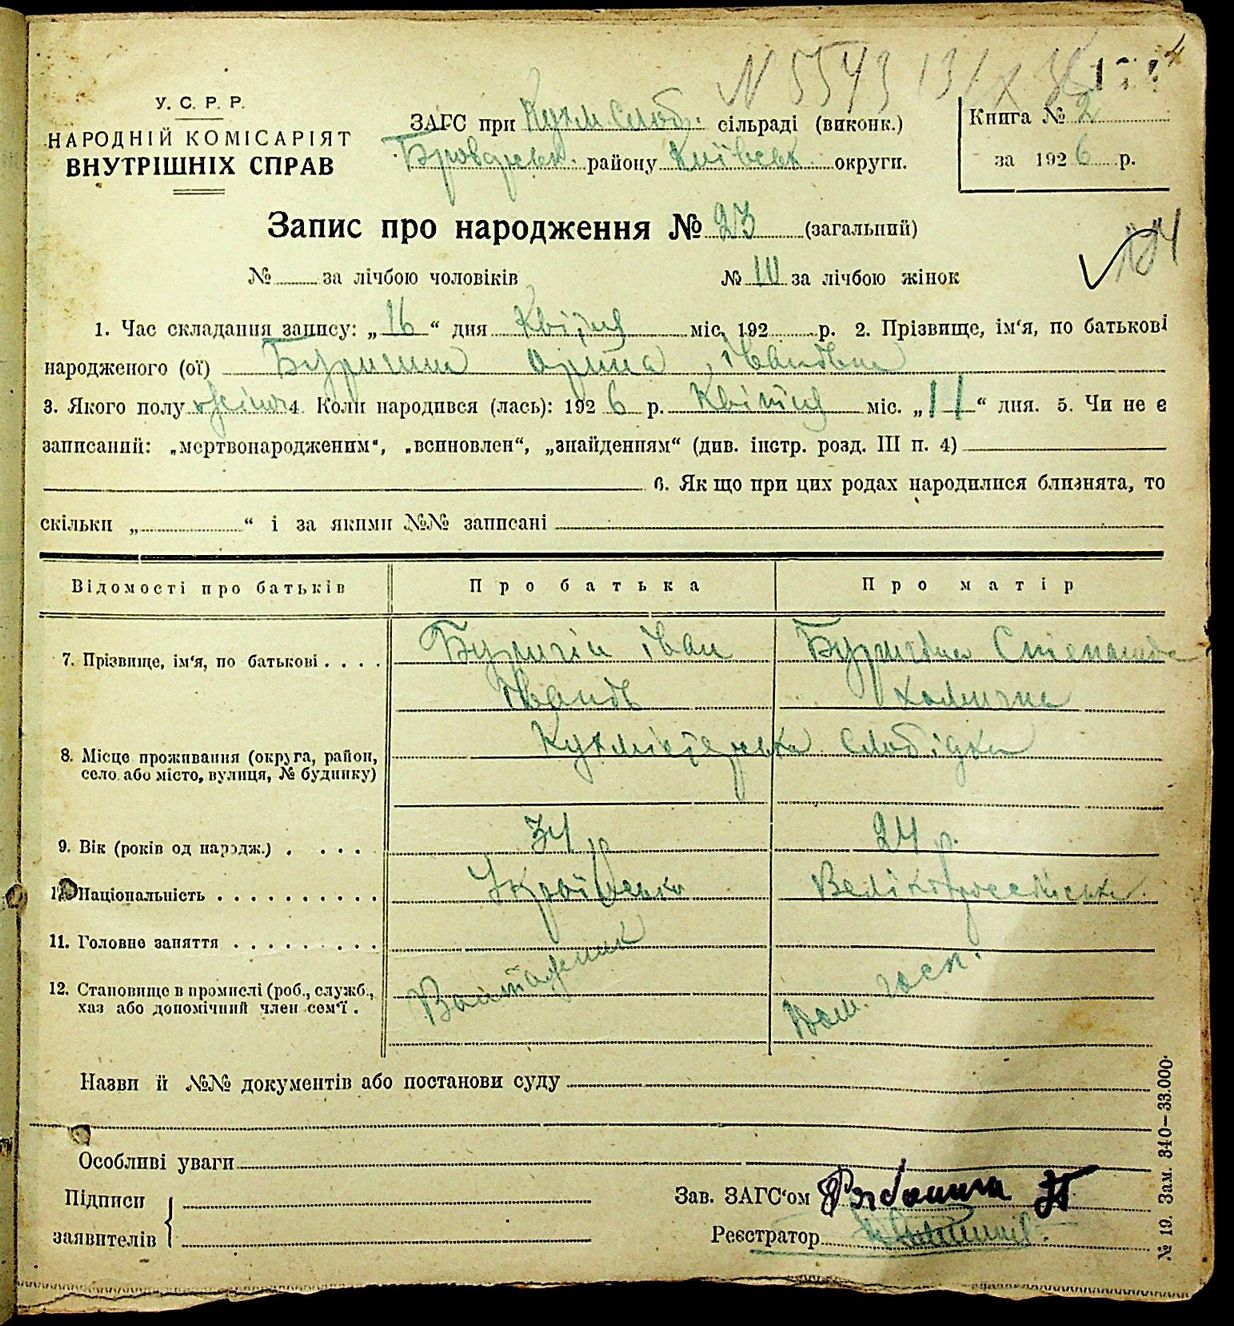 N 5543 131
У. С. Р. Р.
НАРОДНІЙ КОМІСАРІЯТ
ВНУТРІШНІХ СПРАВ
ЗАГС при Кухм Слоб. сільраді (виконк.)
Броварськ. району Київськ округи.
Книга № 2
за 1926 р.
Запис про народження № 23 (загальний)
№ за лічбою чоловіків № 10 за лічбою жінок
1. Час складання запису: „16“ дня Квітня міс. 192 р. 2. Прізвище, ім'я, по батькові
народженого (ої) Іванівна
3. Якого полу жіноч 4. Коли народився (лась): 1926 р. Квітня міс. „11“ дня. 5. Чи не є
записаний: „мертвонародженим“, „всиновлен“, „знайденням“ (див. інстр. розд. III п. 4)
6. Як що при цих родах народилися близнята, то
скільки „ “ і за якими №№ записані
Відомості про батьків Про батька Про матір
7. Прізвище, ім'я, по батькові . . . . Іван
Іванів
8. Місце проживання (округа, район,
село або місто, вулиця, № будинку)
Кухмістерська слобідка
9. Вік (років од народж.) . . . . 34 р 24 р.
Національність . . . . . . . . . . Українська Велікоросейська
11. Головне заняття . . . . . . . . .
12. Становище в промислі (роб., служб.,
хаз або допомічний член сем'ї .
Дом. госп.
Назви й №№ документів або постанови суду
Особливі уваги
Підписи
заявителів
Зав. ЗАГС'ом
Реєстратор
№ 19. Зам. 340—33.000.